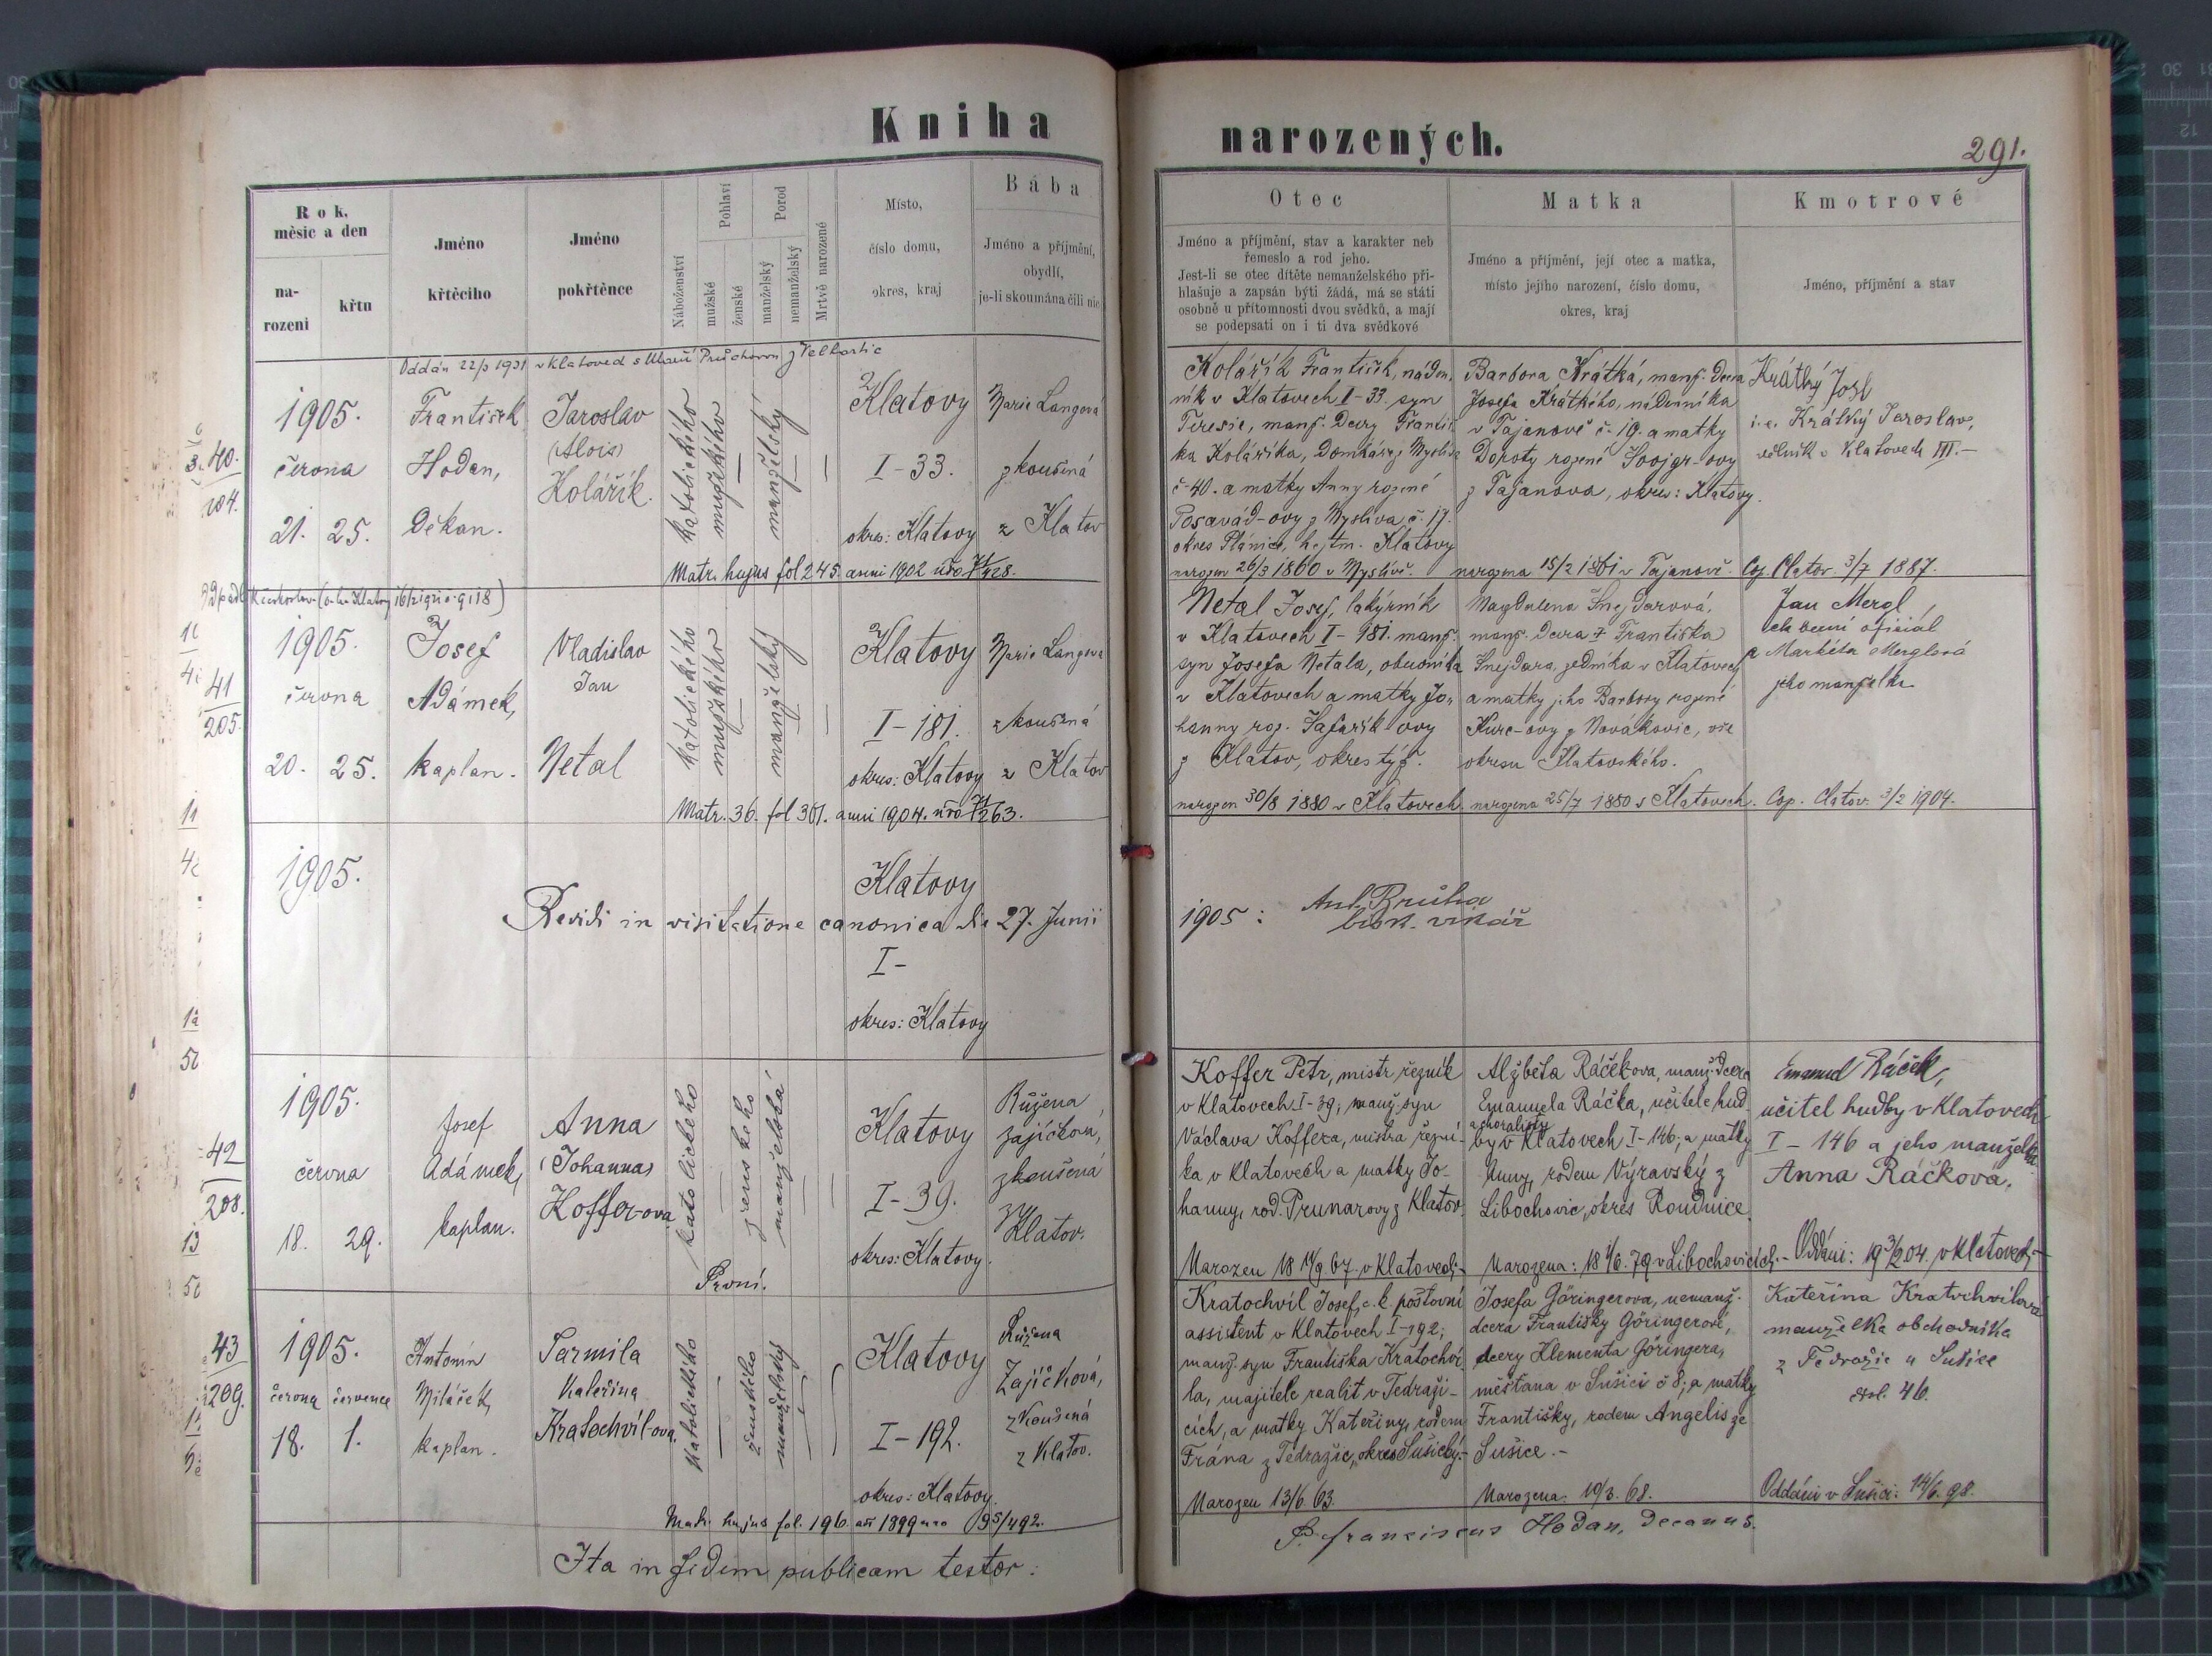 Kniha narozených.
291.
Rok, měsíc a den
na-
rozeni
křtu
Jméno
křtěcího
Jméno
pokřtěnce
Náboženství
Pohlaví
mužské
ženské
Porod
manželský
nemanželský
Mrtvě narozené
Místo,
číslo domu,
okres, kraj
Bába
Jméno a příjmení,
obydlí,
je-li skoumána čili nic
Otec
Jméno a příjmení, stav a karakter neb
řemeslo a rod jeho.
Jest-li se otec dítěte nemanželského při-
hlašuje a zapsán býti žádá, má se státi
osobně u přítomnosti dvou svědků, a mají
se podepsati on i ti dva svědkové
Matka
Jméno a příjmení, její otec a matka,
místo jejího narození, číslo domu,
okres, kraj
Kmotrové
Jméno, příjmení a stav
Oddán 22/3 1931 v Klatovech s
40.
204.
1905.
června
21. 25.
František
Hodan,
Děkan.
Jaroslav
(Alois)
Kolářík.
katolického
mužského
manželský
Klatovy
I-33.
okres: Klatovy
Marie Langová
zkoušená
z Klatov
Matr. hujus fol 245. anni 1902
Kolářík František, náden-
ník v Klatovech I-33. syn
Teresie, manž. dcery Františ-
ka Koláříka, domkáře z Myslíva
č-40. a matky Anny rozené
Posavád-ovy z Myslíva č. 17.
okres Plánice, hejtm. Klatovy
narozen 26/3 1860 v Myslívě.
Barbora Krátká, manž. dcera
Josefa Krátkého, nádenníka
v Tajanově č. 19. a matky
Doroty rozené
z Tajanova, okres: Klatovy.
narozena 15/2 1861 v Tajanově.
Krátký Josef
i. e. Krátký Jaroslav,
v Klatovech III.-
Cop. Clatov. 3/7 1887.
41
205.
1905.
června
20. 25.
Josef
Adámek,
kaplan.
Vladislav
Jan
Netal
katolického
mužského
manželský
Klatovy
I-181.
okres: Klatovy
Marie Langová
zkoušená
z Klatov
Matr. 36. fol 301. anni 1904.
Netal Josef, lakýrník
v Klatovech I-181. manž.
syn Josefa Netala, obuvníka
v Klatovech a matky Jo-
hanny roz. Šafařík-ovy
z Klatov, okres týž.
narozen 30/8 1880 v Klatovech.
Magdalena Šnejdarová,
manž. dcera † Františka
Šnejdara, zedníka v Klatovech
a matky jeho Barbory rozené
Kurc-ovy z Novákovic, vše
okresu Klatovského.
narozena 25/7 1880 v Klatovech.
Jan Mergl,
oficiál
a Markéta Merglová
jeho manželka
Cop. Clatov. 3/2 1904.
1905.
Klatovy
Revidi in visitatione canonica die 27. Junii
1905:
Ant. Bruha
bisk. vikář
I-
okres: Klatovy
42
208.
1905.
června
18. 29.
Josef
Adámek,
kaplan.
Anna
(Johanna)
Koffer-ova
katolického
ženského
manželská
První.
Klatovy
I-39.
okres: Klatovy.
Růžena
Zajíčková,
zkoušená
z
Klatov.
Koffer Petr, mistr řezník
v Klatovech I-39, manž. syn
Václava Koffera, mistra řezní-
ka v Klatovech a matky Jo-
hanny, rod. Prunarovy z Klatov.
Narozen 18 11/9 67 v Klatovech.-
Alžběta Ráčekova, manž. dcera
Emanuela Ráčka, učitele hud-
a choralisty
by v Klatovech I-146, a matky
Anny, rodem Výravský z
Libochovic, okres Roudnice.
Narozena: 18 1/6. 79 v Libochovicích.-
Emanuel Ráček,
učitel hudby v Klatovech
I-146 a jeho manželka
Anna Ráčková.
Oddáni: 19 3/2 04. v Klatovech.-
43
209.
1905.
června července
18. 1.
Antonín
Miláček,
kaplan.
Jarmila
Kateřina
Kratochvíl-ova.
katolického
ženského
manželský
Klatovy
I-192.
okres: Klatovy.
Růžena
Zajíčková,
zkoušená
z Klatov.
Matr. hujus fol. 196. 1899 95/492.
Kratochvíl Josef, c. k. poštovní
assistent v Klatovech I-192;
manž. syn Františka Kratochví-
la, majitele realit v Tedraži-
cích, a matky Kateřiny, rodem
Frána z Tedražic, okres Sušický.-
Narozen 13/6. 63.
Josefa Göringerova, nemanž.
dcera Františky Göringerové,
dcery Klementa Göringera,
měšťana v Sušici č 8; a matky
Františky, rodem Angelis ze
Sušice.-
Narozena: 19/3. 68.
Kateřina Kratochvílová
manželka obchodníka
z Tedražic u Sušice
čísl. 46.
Oddáni v Sušici: 14/6. 98.
Ita in fidem publicam testor:
P. Franciscus Hodan, Decanus.